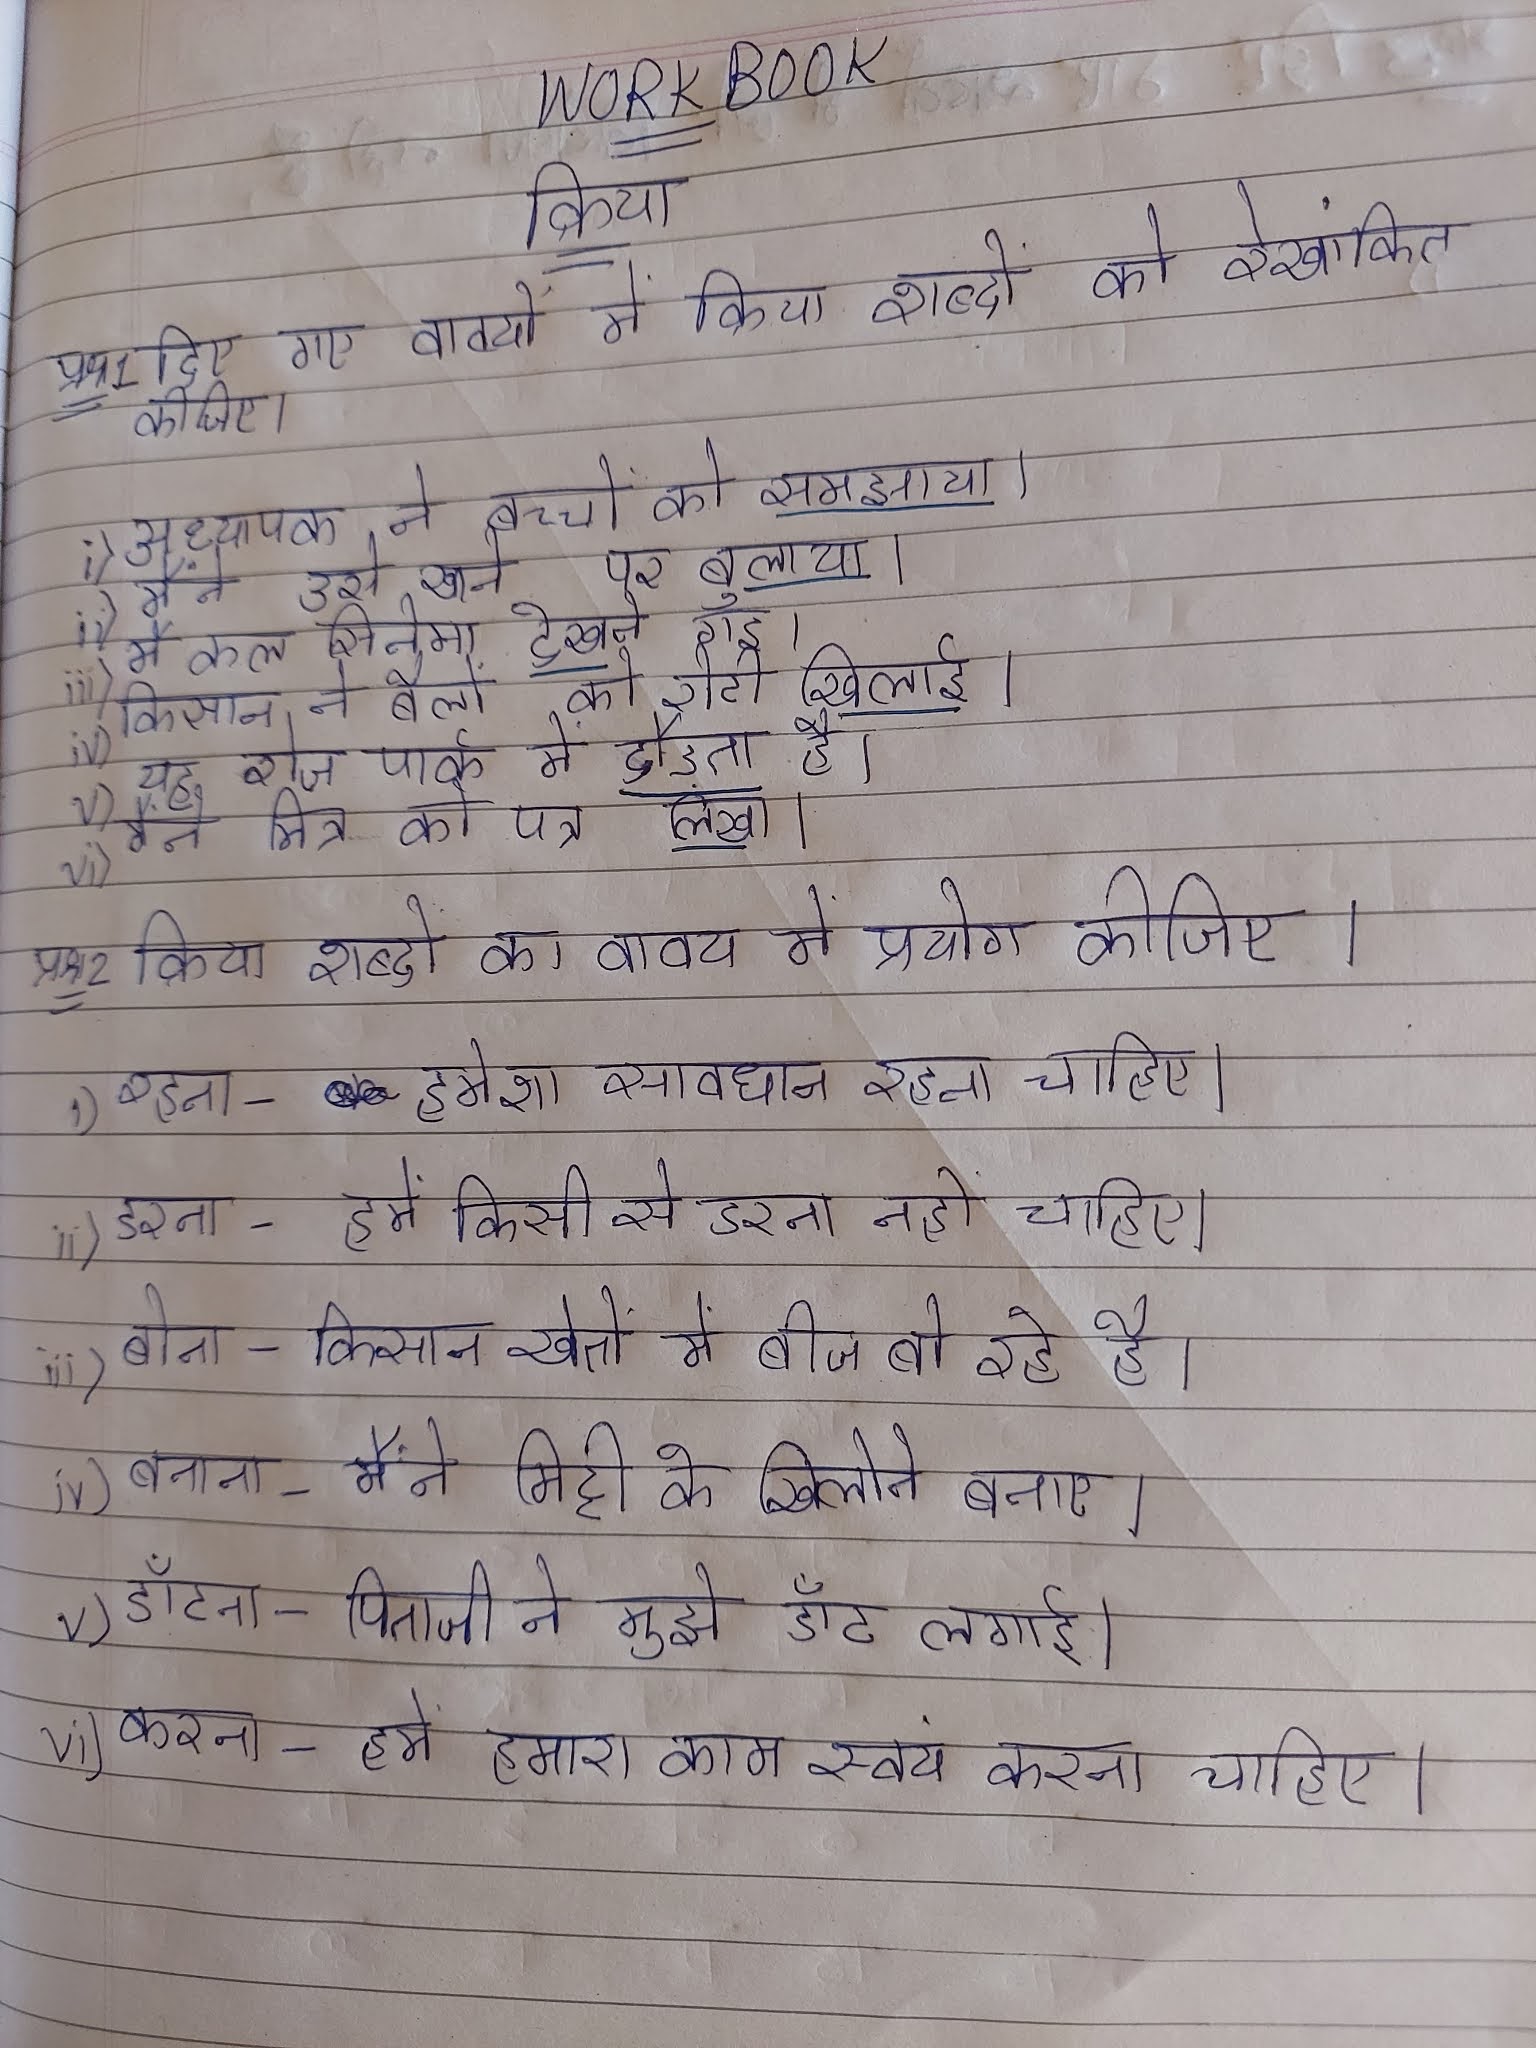 WORKBOOK
क्रिया
प्रश्न1 दिए गए वाक्यों में क्रिया शब्दों को रेखांकित
कीजिए।
i) अध्यापक ने बच्चों को समझाया।
ii) मैंने उसे खाने पर बुलाया।
iii) मैं कल सिनेमा देखने गई।
iv) किसान ने बैलों को रोटी खिलाई।
v) यह रोज पार्क में दौड़ता है।
vi) मैंने मित्र को पत्र लिखा।
प्रश्न2 क्रिया शब्दों का वाक्य में प्रयोग कीजिए।
i) रहना - हमेशा सावधान रहना चाहिए।
ii) डरना - हमें किसी से डरना नहीं चाहिए।
iii) बोना - किसान खेतों में बीज बो रहे है।
iv) बनाना - मैंने मिट्टी के खिलोने बनाए।
v) डाँटना - पिताजी ने मुझे डाँट लगाई।
vi) करना - हमें हमारा काम स्वयं करना चाहिए।